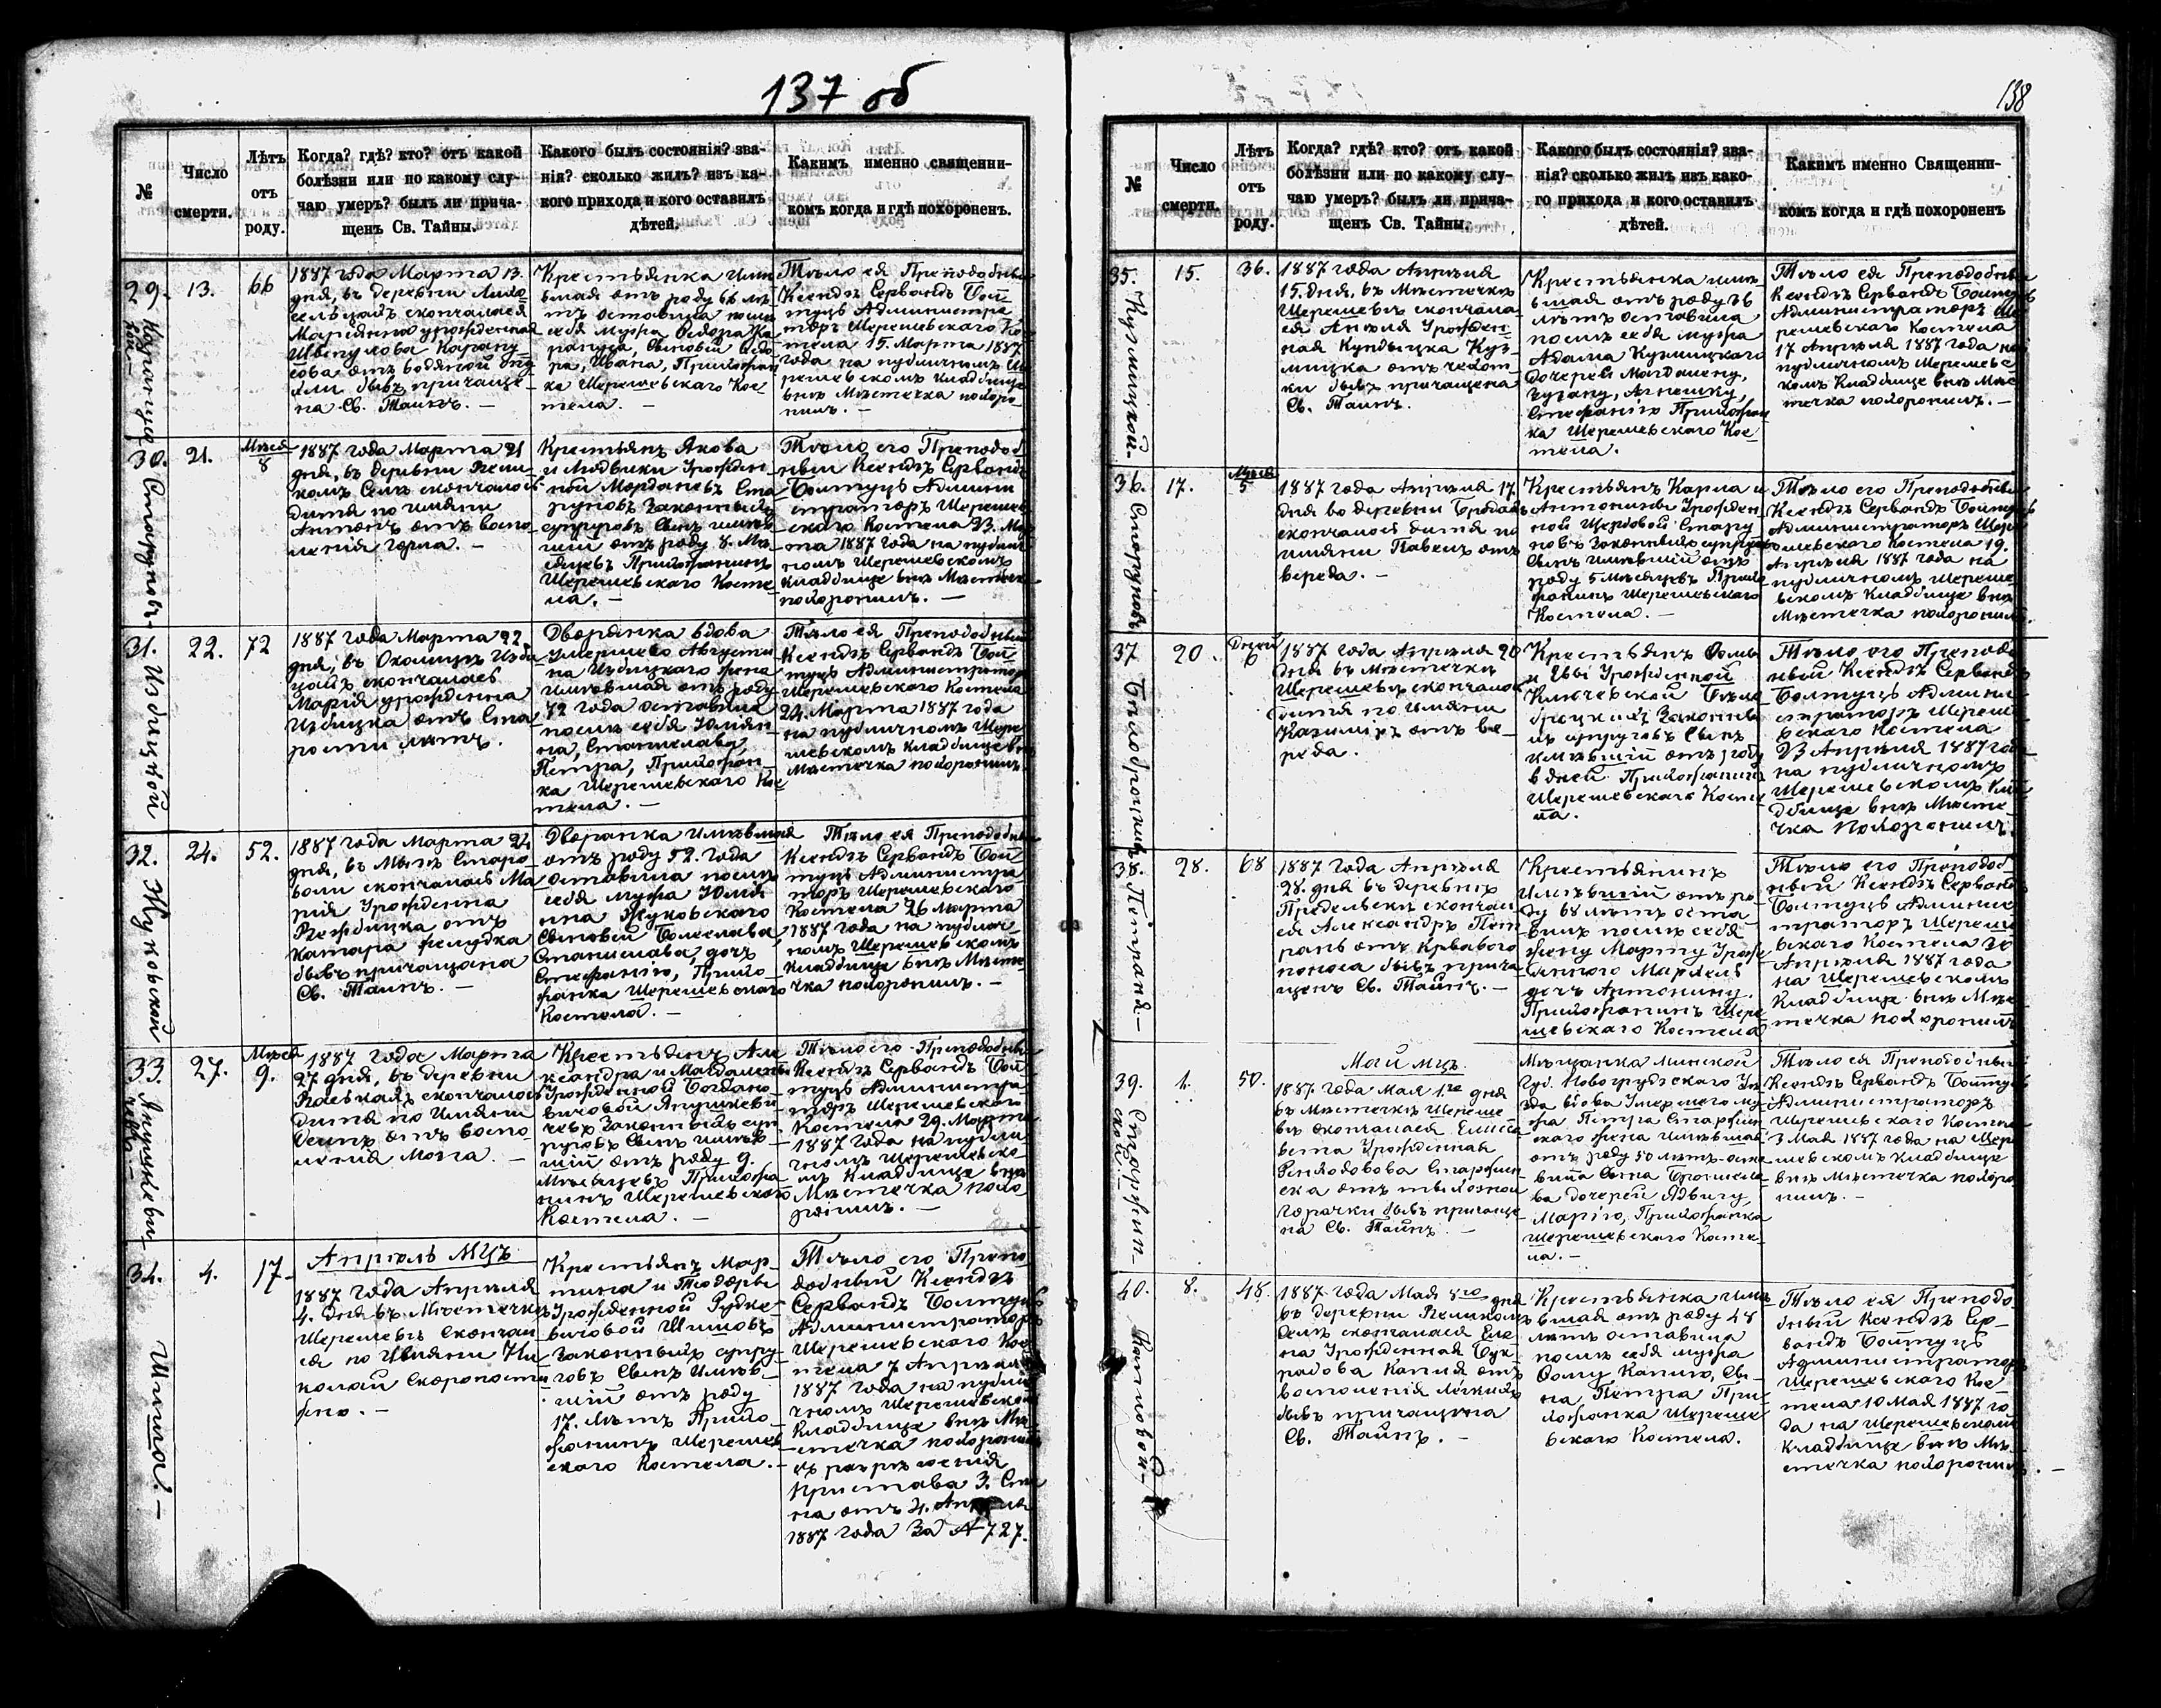 137 об
№
Число
смерти.
Лѣтъ
отъ
роду.
Когда? гдѣ? кто? отъ какой
болѣзни или по какому слу-
чаю умеръ? былъ ли прича-
щенъ Св. Тайны.
Какого былъ состоянія? зва-
нія? сколько жилъ? изъ ка-
кого прихода и кого оставилъ
дѣтей.
Какимъ именно священни-
комъ когда и гдѣ похороненъ.
29.
13.
66
1887 года Марта 13.
дня, въ деревни
сельцахъ скончалася
Марьянна урожденная
отъ водяной
бывъ причаще-
на Св. Таинъ. —
Крестьянка имѣ
вшая отъ роду 66 лѣ
тъ оставила послѣ
себя мужа Ѳедора Ка
рануца, Сыновей Ѳедо
ра, Ивана, Прихожан
ка Шерешевскаго Кос
тела. —
Тѣло ея Преподобный
Ксендзъ Сервандъ Бой
туць Администра
торъ Шерешевскаго Кос
тела 15. Марта 1887
года на публичномъ Ше
решевскомъ Кладбище
внѣ Мѣстечка похоро
нилъ. —
30. Старуновъ
21.
Мѣсяц
8
1887 года Марта 21
дня, въ деревни Вели
комъ Селѣ скончалось
дитя по имяни
Антонъ отъ воспо
ленія горла. —
Крестьянъ Якова
и Людвики Урожден
ной Марданевъ Ста
руновъ Законныхъ
супруговъ Сынъ имѣв
шій отъ роду 8. Мѣ
сяцевъ Прихожанинъ
Шерешевскаго Косте
ла. —
Тѣло его Преподоб
ный Ксендзъ Сервандъ
Бойтуць Админи
страторъ Шерешев
скаго Костела 23. Мар
та 1887 года на публич
номъ Шерешевскомъ
Кладбище внѣ Мѣстечка
похоронилъ. —
31. Избицкой
22.
72
1887 года Марта 22
дня, въ Околицѣ Изби
цахъ скончалась
Марія урожденна
Избицка отъ Ста
рости лѣтъ.
Дворянка вдова
Умершево Августи
на Избицкаго жена
Имѣвшая отъ роду
72 года оставила
послѣ себя Юлиян
на, Станислава,
Петра, Прихожан
ка Шерешевскаго Кос
тела. —
Тѣло ея Преподобный
Ксендзъ Сервандъ Бой
туць Администратор
Шерешевскаго Костела
24. Марта 1887 года
на публичномъ Шере
шевскомъ Кладбище внѣ
Мѣстечка похоронилъ.
32. Жуковской
24.
52.
1887 года Марта 24
дня, въ Старо
воли скончалась Ма
рія Урожденна
отъ
катара желудка
бывъ причащана
Св. Таинъ. —
Дворанка имѣвшая
отъ роду 52. года
оставила послѣ
себя мужа Юлія
на Жуковскаго
Сыновей Болеслава,
Станислава, дочь
Стефанію, Прихо
жанка Шерешевскаго
Костела. —
Тѣло ея Преподобный
Ксендзъ Сервандъ Бой
туць Администра
торъ Шерешевскаго
Костела 26 Марта
1887 года на публич
номъ Шерешевскомъ
Кладбище внѣ Мѣсте
чка похоронилъ. —
33.
27.
Мѣсяц
9.
1887 года Марта
27 дня, въ деревни
скончалось
дитя по Имяни
отъ воспо
ленія Мозга. —
Крестьянъ Але
ксандра и Магдалены
Урожденной Богдано
вичовой Янушкеви
чевъ Законныхъ суп
руговъ Сынъ имѣв
шій отъ роду 9.
Мѣсяцевъ Прихожа
нинъ Шерешевскаго
Костела. —
Тѣло его Преподобный
Ксендзъ Сервандъ Бой
туць Администра
торъ Шерешевскаго
Костела 29. Марта
1887 года на публи
чномъ Шерешевско
мъ Кладбище внѣ
Мѣстечка похо
ронилъ. —
34. Шима. —
4.
17.
Апрѣль Мцъ
1887 года Апрѣля
4. дня въ Мѣстечкѣ
Шерешевѣ Скончал
ся по Имяни Ни
колай Скоропости
жно. —
Крестьянъ Мар
тина и Теодоры
Урожденной Рудке
вичовой Шимовъ
Законныхъ супру
говъ Сынъ Имѣв
шій отъ роду
17. Лѣтъ Прихо
жанинъ Шерешев
скаго Костела. —
Тѣло его Препо
добный Ксендзъ
Сервандъ Бойтуць
Администраторъ
Шерешевскаго Кос
тела 7 Апрѣля
1887 года на публи
чномъ Шерешевском
Кладбище внѣ Мѣ
стечка похоронилъ
съ разрѣшенія
Пристава 3. Ста
на отъ 4. Апрѣля
1887 года За № 727.
138
№
Число
смерти.
Лѣтъ
отъ
роду.
Когда? гдѣ? кто? отъ какой
болѣзни или по какому слу-
чаю умеръ? былъ ли прича-
щенъ Св. Тайны.
Какого былъ состоянія? зва-
нія? сколько жилъ изъ како-
го прихода и кого оставилъ
дѣтей.
Какимъ именно Священни-
комъ когда и гдѣ похороненъ
35. Кузмицкой.
15.
36.
1887 года Апрѣля
15. дня, въ Мѣстечкѣ
Шерешевѣ скончала
ся Анѣля Урожден
ная Куз
мицка отъ чахот
ки бывъ причащена
Св. Таинъ.
Крестьянка имѣ
вшая отъ роду 36
лѣтъ оставила
послѣ себя мужа
Адама Кузмицкаго
Дочерей Магдалену,
Зузану, Агнешку,
Стефанію Прихожан
ка Шерешевскаго Кос
тела.
Тѣло ея Преподобный
Ксендзъ Сервандъ Бойтуць
Администраторъ Ше
решевскаго Костела
17 Апрѣля 1887 года на
публичномъ Шерешевс
комъ Кладбище внѣ Мѣс
течка похоронилъ. —
36. Старуновъ
17.
Мѣсяц
5
1887 года Апрѣля 17
дня во деревни
скончалось дитя по
имяни Павелъ отъ
вереда. —
Крестьянъ Карла и
Антонины Урожден
ной Щердовой Стару
новъ Законныхъ супругов
Сынъ имѣвшій отъ
роду 5 Мѣсяцевъ Прихо
жанинъ Шерешевскаго
Костела. —
Тѣло его Преподобный
Ксендзъ Сервандъ Бойтуць
Администраторъ Шере
шевскаго Костела 19.
Апрѣля 1887 года на
публичномъ Шереше
вскомъ Кладбище внѣ
Мѣстечка похоронилъ.
37
20.
Дней
6
1887 года Апрѣля 20
дня въ Мѣстечкѣ
Шерешевѣ скончалось
дитя по имяни
Казимиръ отъ ве
реда.
Крестьянъ Ѳомы
и Евы Урожденной
Ключевской Бѣло
броцкихъ Законны
хъ супруговъ Сынъ
имѣвшій отъ роду
6 дней Прихожанинъ
Шерешевскаго Косте
ла.
Тѣло его Преподо
бный Ксендзъ Сервандъ
Бойтуць Админи
страторъ Шереше
вскаго Костела
23 Апрѣля 1887 года
на публичномъ
Шерешевскомъ Кла
дбище внѣ Мѣсте
чка похоронилъ.
38. Петраня —
28.
68
1887 года Апрѣля
28. дня въ деревнѣ
скончал
ся Александръ Пет
рань отъ Крваваго
поноса бывъ прича
щенъ Св. Таинъ. —
Крестьянинъ
Имѣвшій отъ ро
ду 68 лѣтъ оста
вилъ послѣ себя
жену Марту Урож
денного
дочь Антонину,
Прихожанинъ Шере
шевскаго Костела
Тѣло его Преподоб
ный Ксендзъ Сервандъ
Бойтуць Админис
траторъ Шереше
вскаго Костела 30
Апрѣля 1887 года
на Шерешевскомъ
Кладбище внѣ Мѣс
течка похоронилъ
39.
1.
50.
Май мцъ
1887. года Мая 1го дня
въ Мѣстечкѣ Шереше
вѣ скончалася Елиса
вета Урожденная
отъ тифозной
горячки бывъ причаще
на Св. Таинъ. —
Мѣщанка Минской
Губ. Новогрудскаго Уѣ
зда вдова Умершаго му
жа Петра
жена имѣвшая
отъ роду 50 лѣтъ оста
вила Сына Бронисла
ва дочерей Ядвигу,
Марію, Прихожанка
Шерешевскаго Косте
ла. —
Тѣло ея Преподобный
Ксендзъ Сервандъ Бойтуць
Администраторъ
Шерешевскаго Костела
3 Мая 1887 года на Шере
шевскомъ Кладбище
внѣ Мѣстечка похоро
нилъ. —
40.
8.
48.
1887. года Мая 8го дня
въ деревни Великомъ
Селѣ скончалася Еле
на Урожденная
отъ
воспаленія легкихъ
бывъ причащена
Св. Таинъ. —
Крестьянка имѣ
вшая отъ роду 48
лѣтъ оставила
послѣ себя мужа
Ѳому Сы
на Петра При
хожанка Шереше
вскаго Костела.
Тѣло ея Преподо
бный Ксендзъ Сер
вандъ Бойтуць
Администраторъ
Шерешевскаго Кос
тела 10 Мая 1887 го
да на Шерешевскомъ
Кладбище внѣ Мѣ
стечка похоронилъ. —